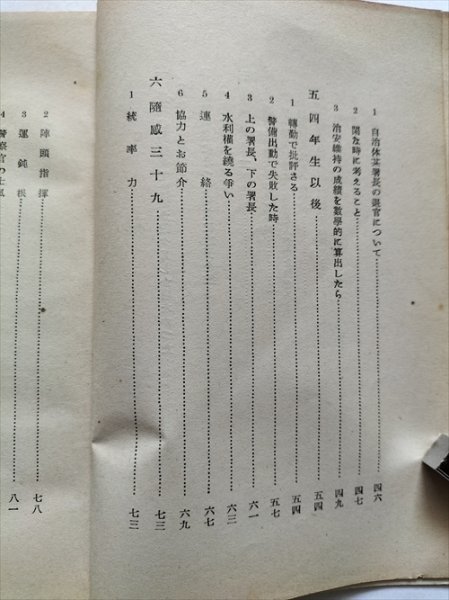 1 自治体某署長の退官について……四六
2 閑な時に考えること……四七
3 治安維持の成績を数學的に算出したら……四九
五 四年生以後……五四
1 轉勤で批評さる……五四
2 警備出動で失敗した時……五七
3 上の署長、下の署長……六一
4 水利權を繞る爭い……六三
5 連絡……六七
6 協力とお節介……六九
六 隨感三十九……七三
1 統率力……七三
2 陣頭指揮……七八
3 運鈍根……八一
4 警察官の士氣